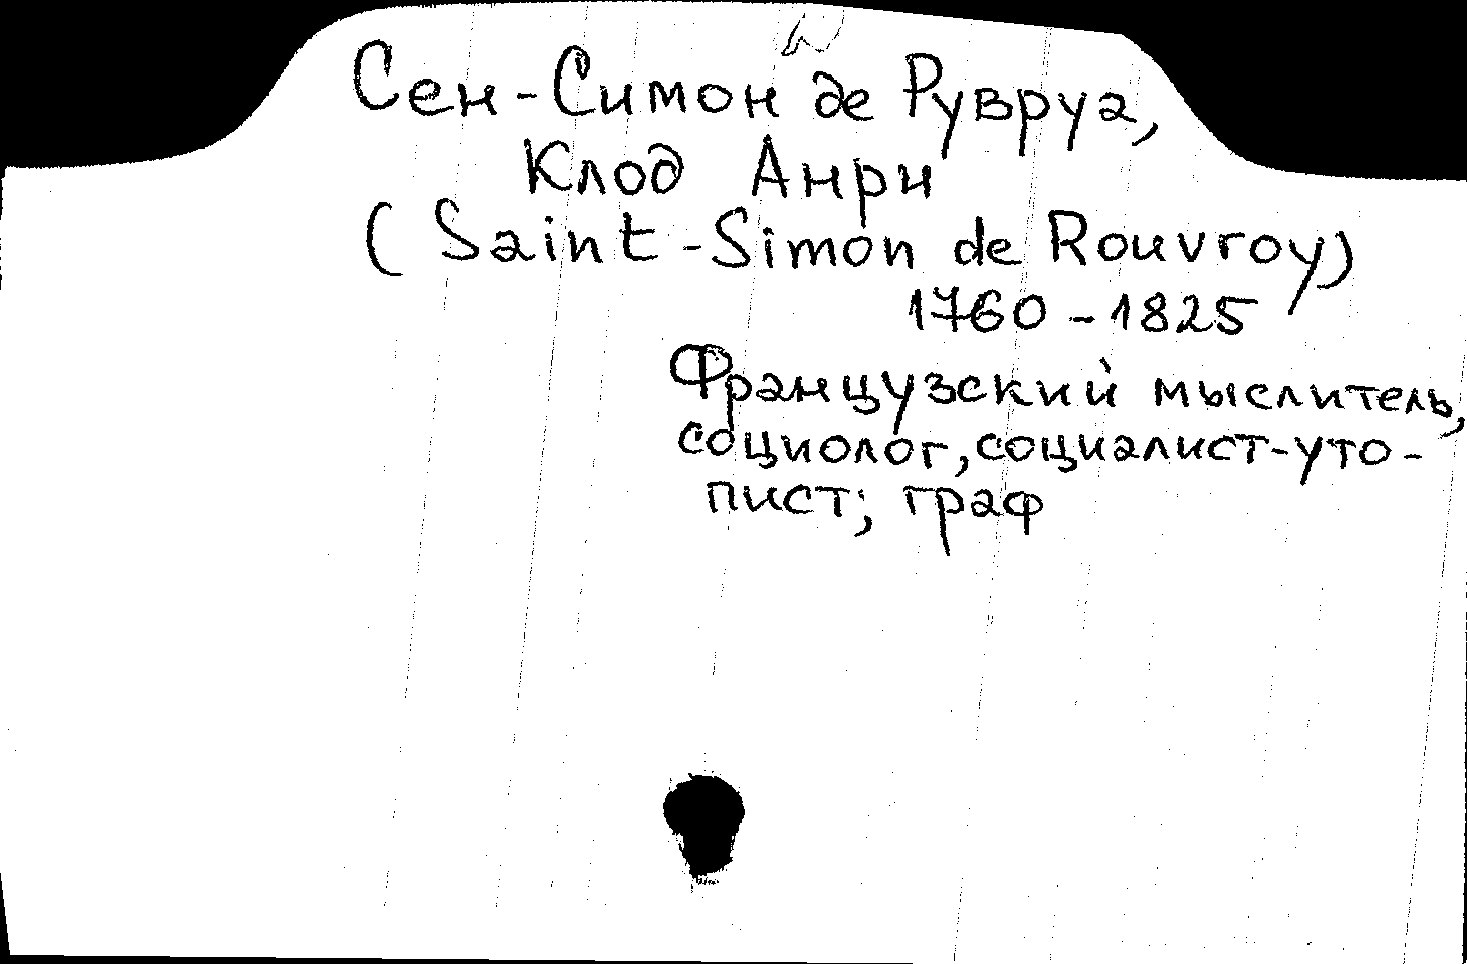 Сен-Симон де Рувруа,
Клод Анри
(Saint-Simon de Rouvroy)
1760-1825
Французский мыслитель,
социолог, социалист-уто-
пист; граф